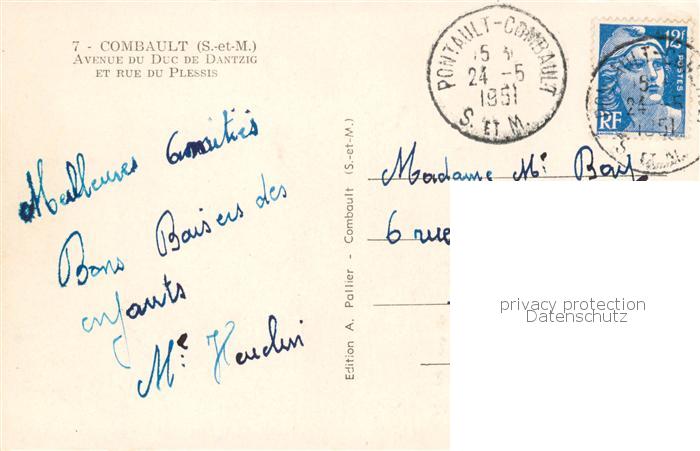 7 - COMBAULT (S.-et-M.)
AVENUE DU DUC DE DANTZIG
ET RUE DU PLESSIS
PONTAULT-COMBAULT
24 -5
1951
S. ET M.
12F
POSTES
RF
Meilleures amitiés
Bons Baisers des
enfants
Me
Edition A. Pallier - Combault (S.-et-M.)
Madame Me
6 rue
privacy protection
Datenschutz